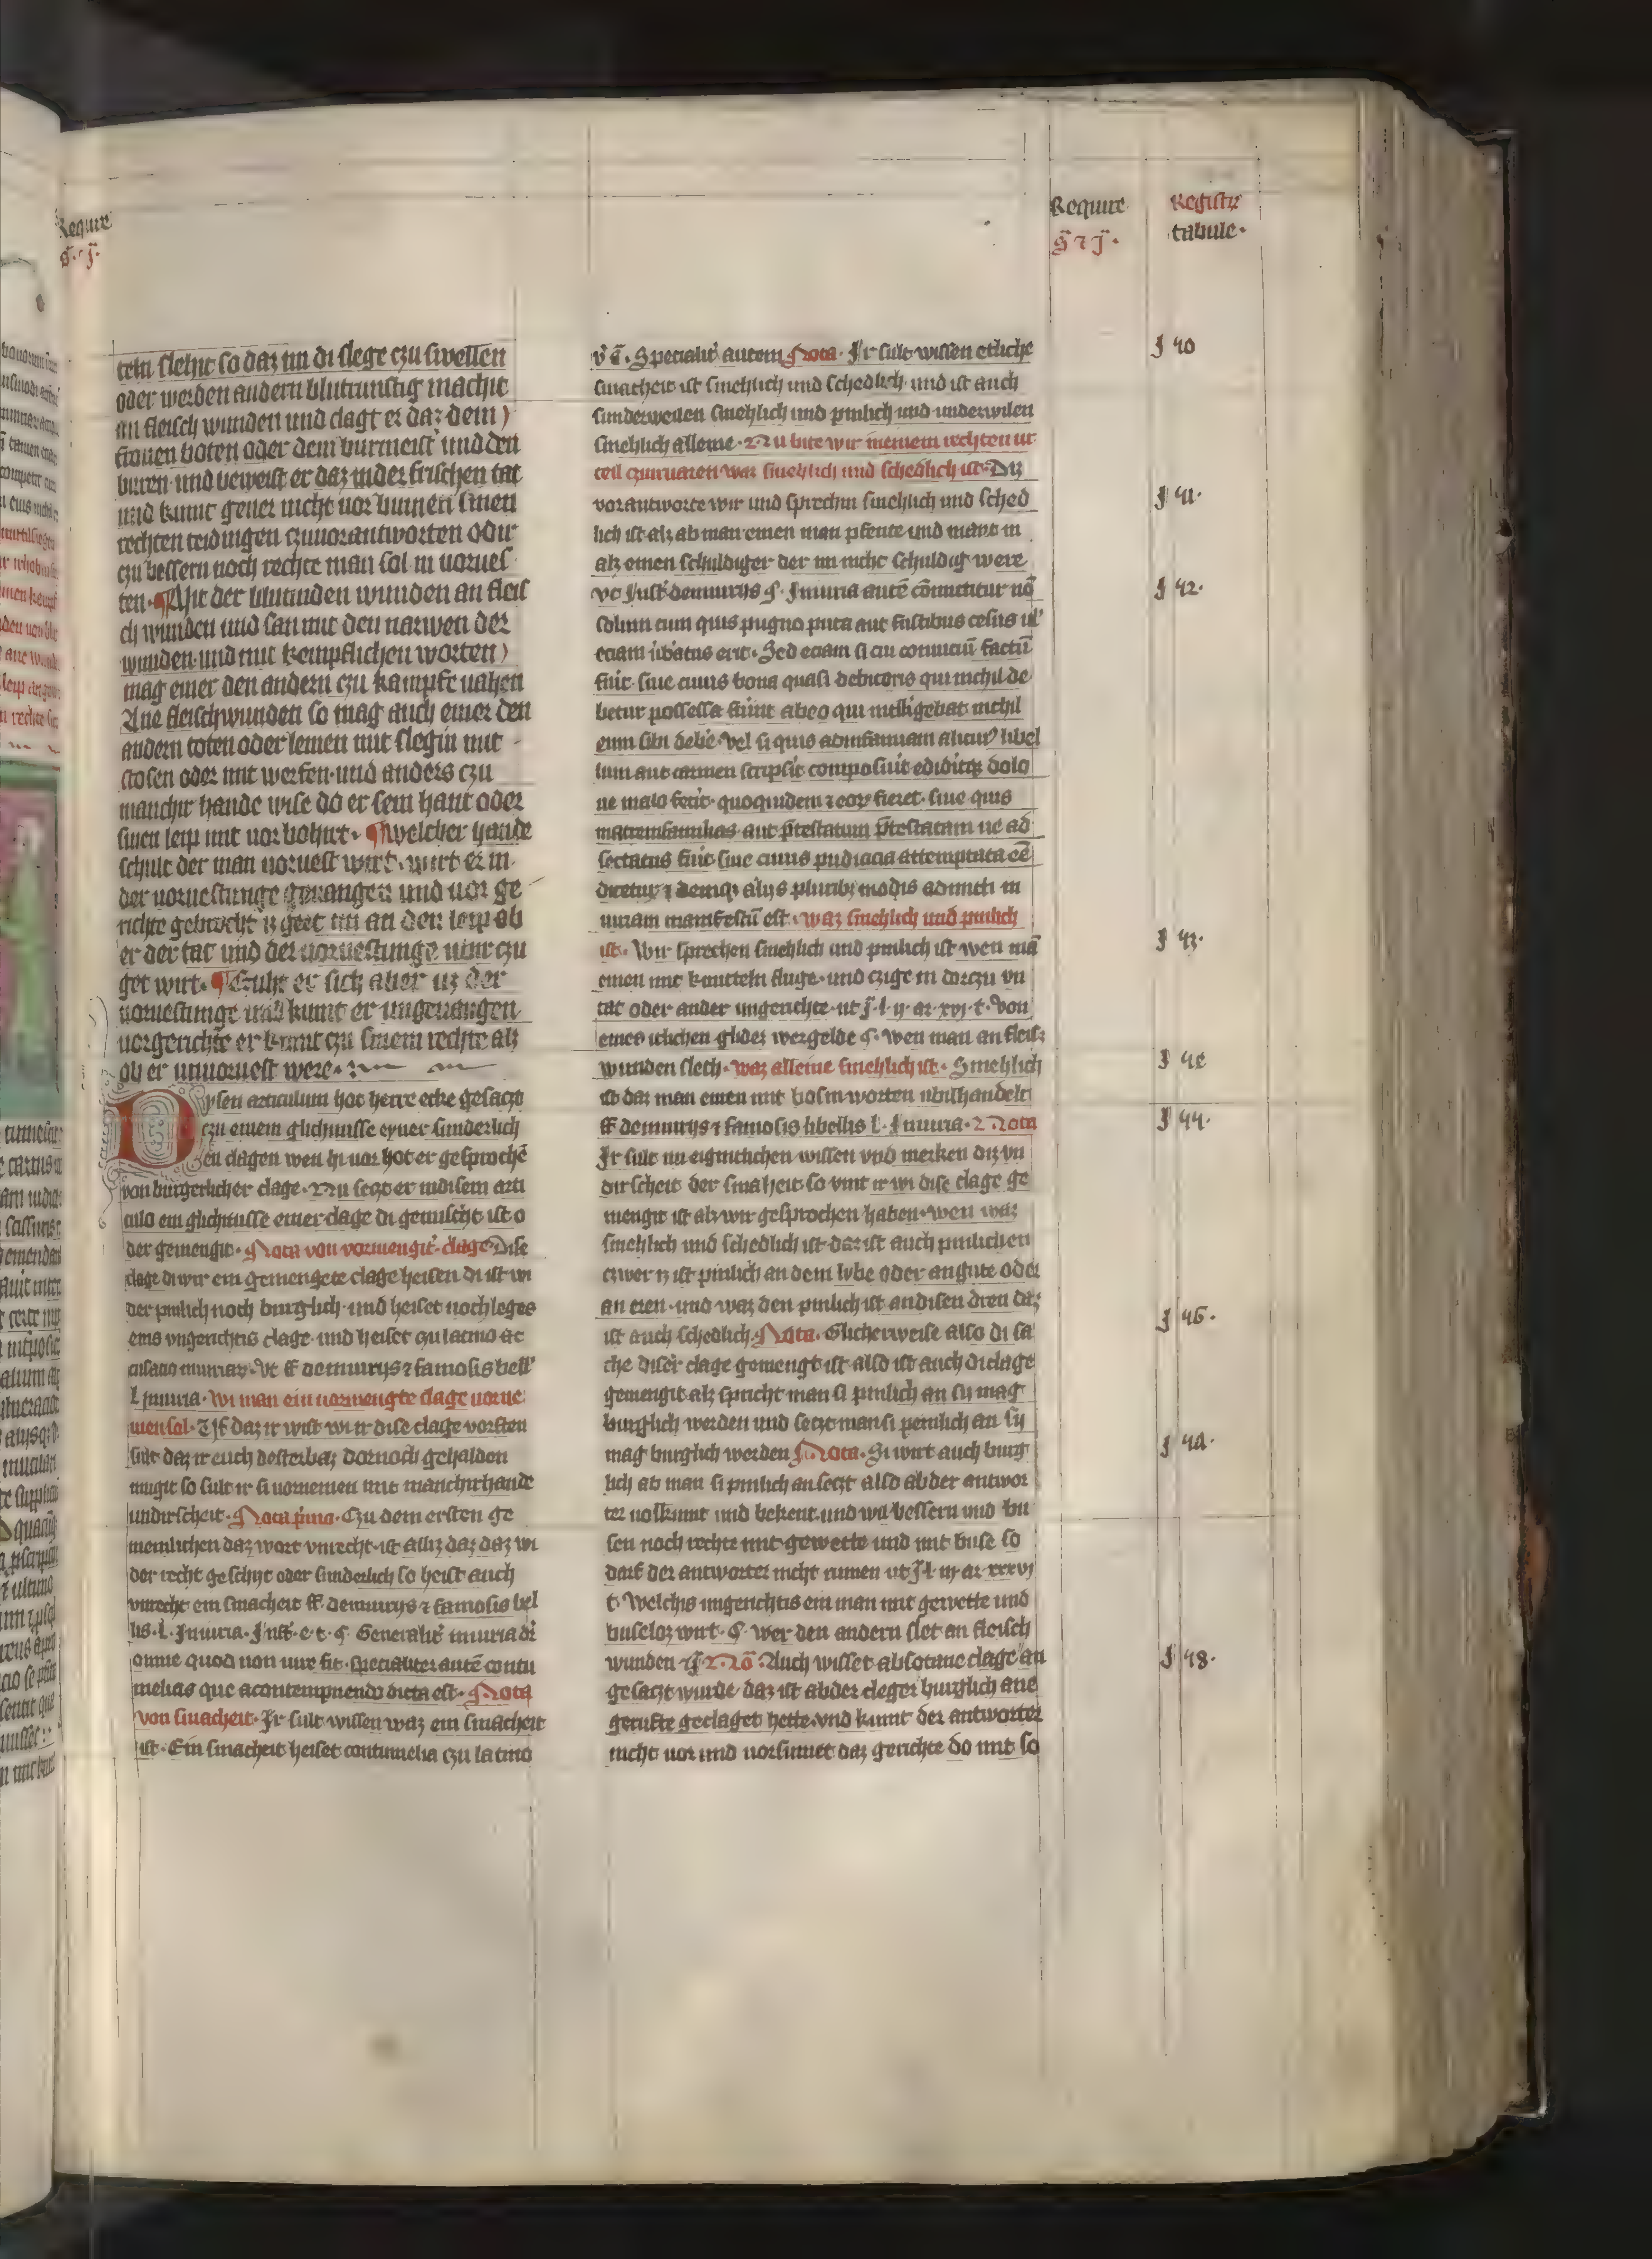 Require
s̄ ⁊ j̄.
Registr̄
tabule.
teln slehit so daz im di slege czu swellen
oder werden andern blutrunstig machit
an fleisch wunden und clagt er daz dem
fronen boten oder dem burmeist' und den
buren und beweist er daz in der frischen tat
und kumt gener nicht vor binnen sinen
rechten teidingen czuuorantworten odir
czu bessern noch rechte man sol in uorues
ten. ¶ Mit der blutinden wunden an fleis
ch wunden und san mit den narwen der
wunden und mit kempflichen worten
mag einer den andern czu kampfe uahen
Ane fleischwunden so mag auch einer den
andern toten oder lemen mit slegin mit
stosen oder mit werfen und anders czu
manchir hande wise do er sein haut oder
sinen leip mit uorbohirt. ¶ welcher hande
schult der man uoruest wirt. wirt er in
der uoruestunge geuangen und uor ge
richte gebracht iz geet im an den leip ob
er der tat und der uoruestunge uber czu
get wirt. ¶ Czuht er sich aber uz der
uoruestunge und kumt er ungeuangen
uorgerichte er kumt czu sinem rechte alz
ob er unuoruest were.
Dysen articulum hot herre ecke gesaczt
czu einem glichnisse eyner sunderlich
en clagen wen hi uor hot er gesprochē
von burgerlicher clage. Nu seczt er in disem arti
culo ein glichnisse einer clage di gemischt ist o
der gemengit. Nota von vormengit' clage Dise
clage di wir ein gemengete clage heisen di ist wi
der pinlich noch burglich und heiset noch leges
eins ungerichtis clage und heiset czu latino ac
cusacio iniuriar̄. Vt ff de iniurijs ⁊ famosis libell'
l Iniuria. Wi man ein uormengte clage uorne
men sol. Uf daz ir wist wi ir dise clage vorsten
sult daz ir euch desterbaz dornoch gehalden
mugit so sult ir si uornemen mit manchirhande
undirscheit. Nota p̄mo. Czu dem ersten ge
meinlichen daz wort vnrecht ist alliz daz daz wi
der recht geschijt oder sunderlich so heist auch
vnrecht ein smacheit ff de iniurijs ⁊ famosis libel
lis. l. Iniuria. Inst'. e. t. §. Generalit' iniuria dr̄
omne quod non iure fit. specialiter autē contu
melias que a contempnendo dicta est. Nota
von smacheit. Ir sult wissen waz ein smacheit
ist. Ein smacheit heiset contumelia czu latino
v̄ ē. Specialit' autem Nota. Ir sult wissen etliche
smacheit ist smehlich und schedlich und ist auch
sunderweilen smehlich und pinlich und underwilen
smehlich alleine. Nu bite wir in einem rechten ur
teil czuiruaren waz smehlich und schedlich ist. Diz
vorantworte wir und sprechin smehlich und sched
lich ist alz ab man einen man pfente und mant in
alz einen schuldiger der im nicht schuldig were
vt Inst' de iniurijs §. Iniuria autē cōmittitur nō
solum cum quis pugno puta aut fustibus cesus ul'
eciam ūbatus erit. Sed eciam si cui conuiciū factū
fuit. siue cuius bona quasi debitoris qui nichil de
betur possessa fuīnt ab eo qui intelligebat nichil
eum sibi debē. vel si quis ad infamiam alicuiꝰ libel
lum aut carmen scripsit composuit ediditqꝫ dolo
ue malo fecit. quo quidem ⁊ eor̄ fieret. siue quis
matremfamilias aut p̄textatum p̄textatam ue ad
sectatus fuit siue cuius pudicicia attemptata eē
dicetur ⁊ deniqꝫ alijs pluribꝫ modis admitti in
iuriam manifestū est. waz smehlich und pinlich
ist. Wir sprechen smehlich und pinlich ist wen mā
einen mit knutteln sluge. und czige in dorczu un
tat oder ander ungerichte. ut j̄. l. ij. ar. xvj. t. von
eines iclichen glidez wergelde §. wen man an fleis
wunden slech. waz alleine smehlich ist. Smehlich
ist daz man einen mit bosin worten ubilhandelt
ff de iniurijs ⁊ famosis libellis l. Iniuria. 2 Nota
Ir sult nu eigintlichen wissen vnd merken diz vn
dirscheit der smaheit so vint ir wi dise clage ge
mengit ist alz wir gesprochen haben. wen waz
smehlich und schedlich ist. daz ist auch pinlichen
czwer iz ist pinlich an dem lybe oder an gute oder
an eren. und waz den pinlich ist an disen dren daz
ist auch schedlich. Nota. Glicherweise also di sa
che diser clage gemengt ist also ist auch di clage
gemengit alz spricht man si pinlich an sy mag
burglich werden und seczt man si peinlich an sy
mag burglich werden Nota. Si wirt auch burg
lich ab man si pinlich an seczt also ab der antwor
ter uolkumt und bekent. und wil bessern und bu
sen noch rechte mit gewette und mit buse so
darf der antworter nicht rumen ut j̄ l. iij ar. xxxvj
t. Welchis ungerichtis ein man mit gewette und
buseloz wirt. §. wer den andern slet an fleisch
wunden ⁊ j̄. 2 Nō. Auch wisset ab sotane clage an
gesaczt wurde daz ist ab der cleger burglich ane
gerufte geclaget hette. vnd kumt der antworter
nicht uor und uorsumet daz gerichte do mit so
J 40
J 41.
J 42.
J 43.
J 4e
J 44.
J 46.
J 4A.
J 48.